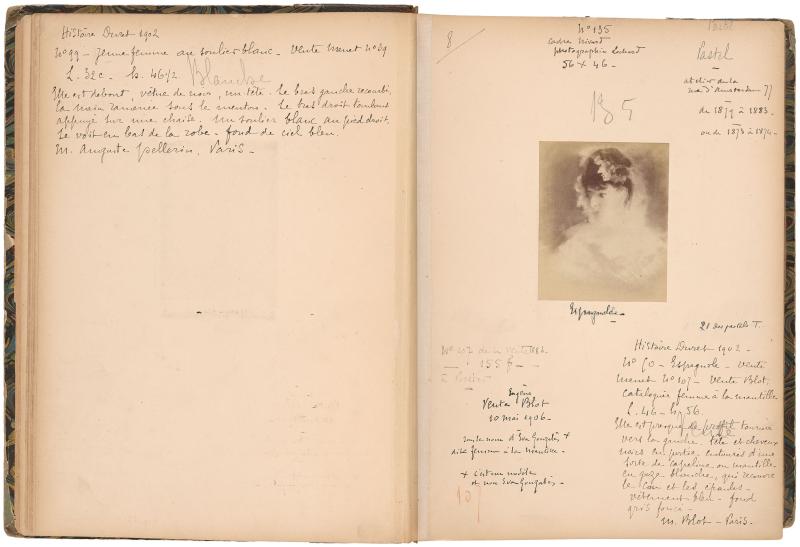 Histoire Duret 1902
N° 99 - Jeune femme au soulier blanc - Vente Manet n° 39
L. 32 c. - h. 46 1/2
Blanche
Elle est debout, vêtue de noir, nu tête. Le bras gauche recourbé,
la main ramenée sous le menton. Le bras droit tombant
appuyé sur une chaise. Un soulier blanc au pied droit.
se voit en bas de la robe - fond de ciel bleu.
M. Auguste Pellerin, Paris -
8
N° 135
cadre Nivard
photographie Lochard
56 x 46 -
135
Pastel
Pastel
atelier de la
rue d'Amsterdam 77
de 1879 à 1883 -
ou de 1873 à 1874 -
Espagnole -
21 des pastels T.
N° 107 de la vente
155 f -
Eugène
Vente Blot
10 mai 1906 -
sous le nom d'Eva Gonzalès +
dite femme à la mantille -
+ c'est un modèle
et non Eva Gonzalès -
107
Histoire Duret 1902 -
N° 50 - Espagnole - Vente
Manet N° 107 - Vente Blot,
cataloguée femme à la mantille
L. 46 - h. 56.
Elle est presque de profil tournée
vers la gauche. Tête et cheveux
noirs en partie entourés d'une
sorte de capeline ou mantille
en gaze blanche, qui recouvre
le cou et les épaules -
vêtement bleu - fond
gris foncé -
M. Blot - Paris -